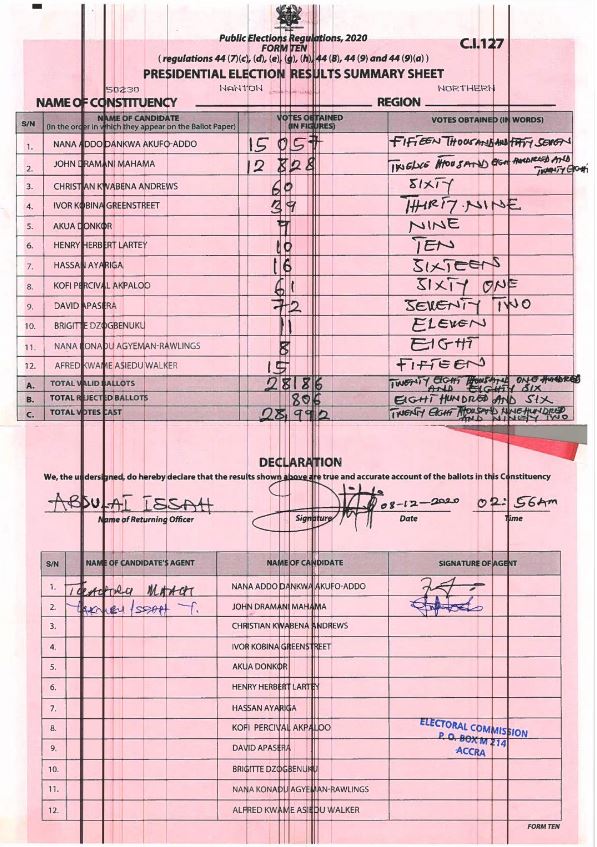 Public Elections Regulations, 2020
FORM TEN
C.I.127
( regulations 44 (7)(c), (d), (e), (g), (h), 44 (8), 44 (9) and 44 (9)(a) )
PRESIDENTIAL ELECTION RESULTS SUMMARY SHEET
S0230 NANTON NORTHERN
NAME OF CONSTITUENCY REGION
S/N NAME OF CANDIDATE (In the order in which they appear on the Ballot Paper) VOTES OBTAINED (IN FIGURES) VOTES OBTAINED (IN WORDS)
1. NANA ADDO DANKWA AKUFO-ADDO 15 057 FIFTEEN THOUSAND AND FIFTY SEVEN
2. JOHN DRAMANI MAHAMA 12 828 TWELVE THOUSAND EIGH HUNDRED AND TWENTY EIGHT
3. CHRISTIAN KWABENA ANDREWS 60 SIXTY
4. IVOR KOBINA GREENSTREET 39 THIRTY-NINE
5. AKUA DONKOR 9 NINE
6. HENRY HERBERT LARTEY 10 TEN
7. HASSAN AYARIGA 16 SIXTEEN
8. KOFI PERCIVAL AKPALOO 61 SIXTY ONE
9. DAVID APASERA 72 SEVENTY TWO
10. BRIGITTE DZOGBENUKU 11 ELEVEN
11. NANA KONADU AGYEMAN-RAWLINGS 8 EIGHT
12. AFRED KWAME ASIEDU WALKER 15 FIFTEEN
A. TOTAL VALID BALLOTS 28186 TWENTY EIGHT THOUSAND ONE HUNDRED AND EIGHTY SIX
B. TOTAL REJECTED BALLOTS 806 EIGHT HUNDRED AND SIX
C. TOTAL VOTES CAST 28,992 TWENTY EIGHT THOUSAND NINE HUNDRED AND NINETY TWO
DECLARATION
We, the undersigned, do hereby declare that the results shown above are true and accurate account of the ballots in this Constituency
ABDULAI ISSAH 08-12-2020 02:56AM
Name of Returning Officer Signature Date Time
S/N NAME OF CANDIDATE'S AGENT NAME OF CANDIDATE SIGNATURE OF AGENT
1. NANA ADDO DANKWA AKUFO-ADDO
2. ISSAH Y. JOHN DRAMANI MAHAMA
3. CHRISTIAN KWABENA ANDREWS
4. IVOR KOBINA GREENSTREET
5. AKUA DONKOR
6. HENRY HERBERT LARTEY
7. HASSAN AYARIGA
8. KOFI PERCIVAL AKPALOO
9. DAVID APASERA
10. BRIGITTE DZOGBENUKU
11. NANA KONADU AGYEMAN-RAWLINGS
12. ALFRED KWAME ASIEDU WALKER
ELECTORAL COMMISSION
P. O. BOX M 214
ACCRA
FORM TEN